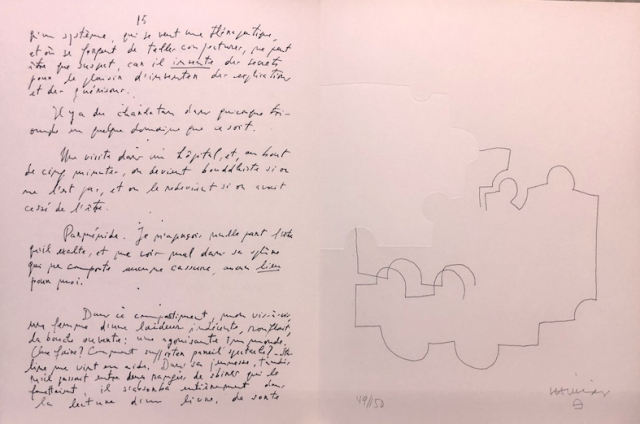 15
qu'un système, qui se veut une thérapeutique,
et où se forgent de telles conjectures, ne peut
être que suspect, car il invente des secrets
pour le plaisir d'inventer des explications
et des guérisons.
Il y a du charlatan dans quiconque tri-
omphe en quelque domaine que ce soit.
Une visite dans un hôpital, et, au bout
de cinq minutes, on devient bouddhiste si on
ne l'est pas, et on le redevient si on avait
cessé de l'être.
Parménide. Je n'aperçois nulle part l'être
qu'il exalte, et me vois mal dans sa sphère
qui ne comporte aucune cassure, aucun lieu
pour moi.
Dans ce compartiment, mon vis-à-vis
une femme d'une laideur indécente, ronflait,
la bouche ouverte: une agonisante immonde.
Que faire? Comment supporter pareil spectacle? - Sta-
line me vint en aide. Dans sa jeunesse,
qu'il passait entre deux rangées de sbires qui le
fouettaient, il s'absorba entièrement dans
la lecture d'un livre, de sorte
49/150